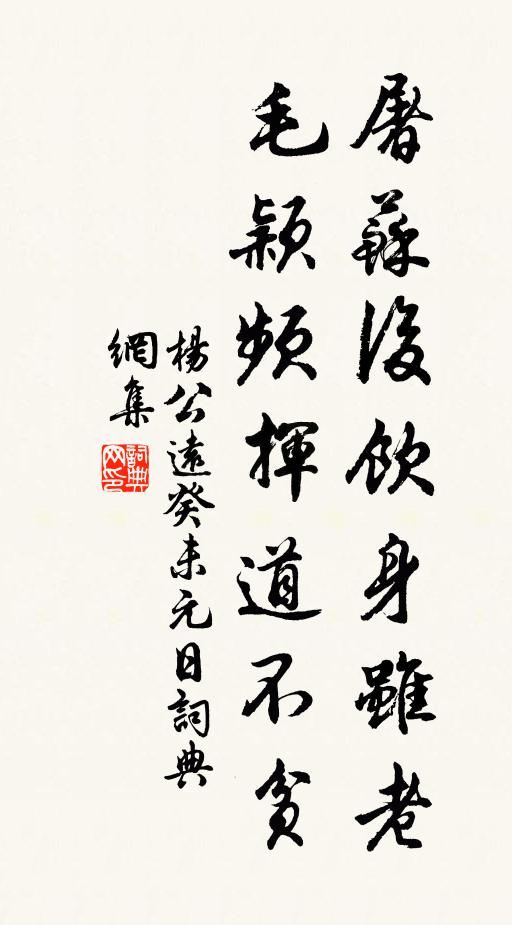 屠蘇後飲身雖老
毛穎頻揮道不貧
楊公遠癸未元日詞典
網集
詞典
网印